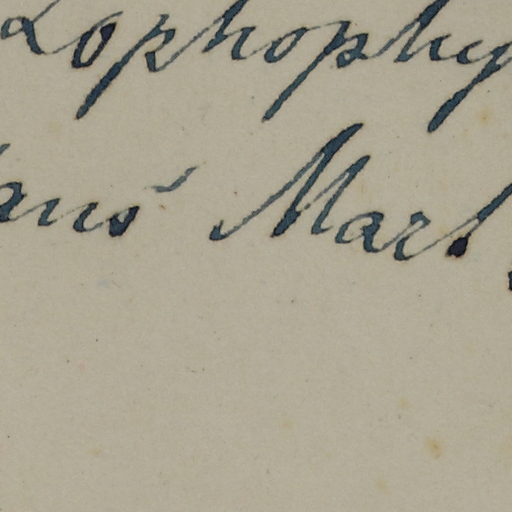 Lophophy
ans Mart